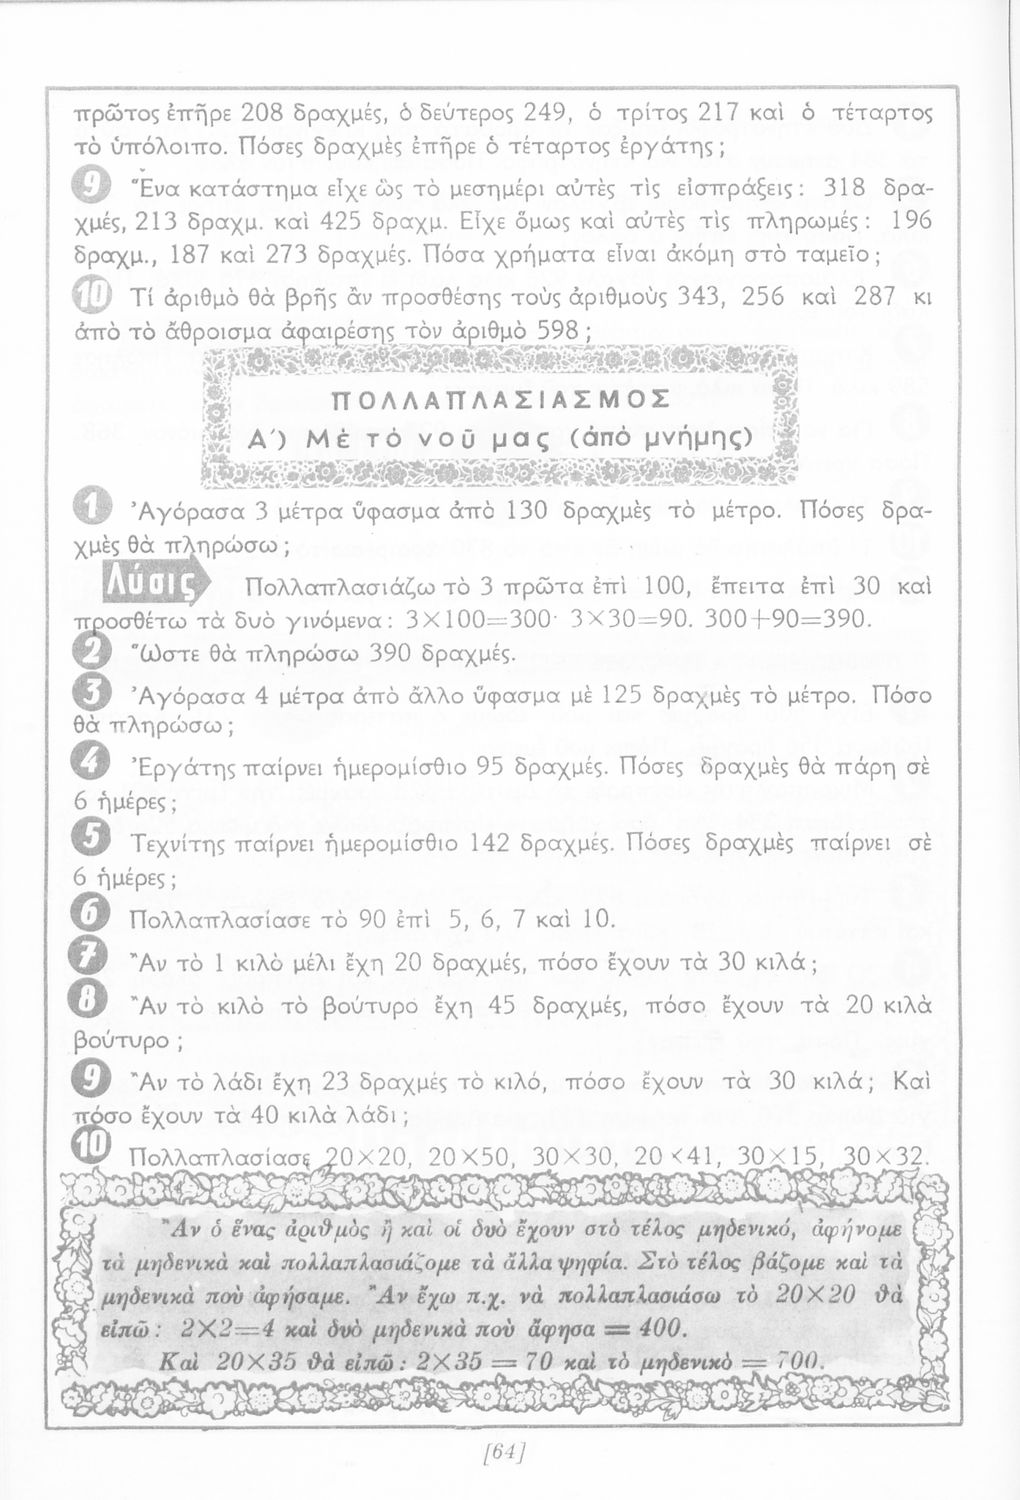 πρῶτος ἐπῆρε 208 δραχμές, ὁ δεύτερος 249, ὁ τρίτος 217 καὶ ὁ τέταρτος
τὸ ὑπόλοιπο. Πόσες δραχμὲς ἐπῆρε ὁ τέταρτος ἐργάτης ;
9 Ἕνα κατάστημα εἶχε ὣς τὸ μεσημέρι αὐτὲς τὶς εἰσπράξεις : 318 δρα-
χμές, 213 δραχμ. καὶ 425 δραχμ. Εἶχε ὅμως καὶ αὐτὲς τὶς πληρωμές : 196
δραχμ., 187 καὶ 273 δραχμές. Πόσα χρήματα εἶναι ἀκόμη στὸ ταμεῖο ;
10 Τί ἀριθμὸ θὰ βρῆς ἂν προσθέσης τοὺς ἀριθμοὺς 343, 256 καὶ 287 κι
ἀπὸ τὸ ἄθροισμα ἀφαιρέσης τὸν ἀριθμὸ 598 ;
ΠΟΛΛΑΠΛΑΣΙΑΣΜΟΣ
Α΄) Μὲ τὸ νοῦ μας (ἀπὸ μνήμης)
1 Ἀγόρασα 3 μέτρα ὕφασμα ἀπὸ 130 δραχμὲς τὸ μέτρο. Πόσες δρα-
χμὲς θὰ πληρώσω ;
Λύσις Πολλαπλασιάζω τὸ 3 πρῶτα ἐπὶ 100, ἔπειτα ἐπὶ 30 καὶ
προσθέτω τὰ δυὸ γινόμενα : 3×100=300· 3×30=90. 300+90=390.
2 Ὥστε θὰ πληρώσω 390 δραχμές.
3 Ἀγόρασα 4 μέτρα ἀπὸ ἄλλο ὕφασμα μὲ 125 δραχμὲς τὸ μέτρο. Πόσο
θὰ πληρώσω ;
4 Ἐργάτης παίρνει ἡμερομίσθιο 95 δραχμές. Πόσες δραχμὲς θὰ πάρη σὲ
6 ἡμέρες ;
5 Τεχνίτης παίρνει ἡμερομίσθιο 142 δραχμές. Πόσες δραχμὲς παίρνει σὲ
6 ἡμέρες ;
6 Πολλαπλασίασε τὸ 90 ἐπὶ 5, 6, 7 καὶ 10.
7 Ἂν τὸ 1 κιλὸ μέλι ἔχη 20 δραχμές, πόσο ἔχουν τὰ 30 κιλά ;
8 Ἂν τὸ κιλὸ τὸ βούτυρο ἔχη 45 δραχμές, πόσο ἔχουν τὰ 20 κιλὰ
βούτυρο ;
9 Ἂν τὸ λάδι ἔχη 23 δραχμές τὸ κιλό, πόσο ἔχουν τὰ 30 κιλά ; Καὶ
πόσο ἔχουν τὰ 40 κιλὰ λάδι ;
10 Πολλαπλασίασε 20×20, 20×50, 30×30, 20×41, 30×15, 30×32.
Ἂν ὁ ἕνας ἀριθμὸς ἢ καὶ οἱ δυὸ ἔχουν στὸ τέλος μηδενικό, ἀφήνομε
τὰ μηδενικὰ καὶ πολλαπλασιάζομε τὰ ἄλλα ψηφία. Στὸ τέλος βάζομε καὶ τὰ
μηδενικὰ ποὺ ἀφήσαμε. Ἂν ἔχω π.χ. νὰ πολλαπλασιάσω τὸ 20×20 θὰ
εἰπῶ : 2×2=4 καὶ δυὸ μηδενικὰ ποὺ ἄφησα = 400.
Καὶ 20×35 θὰ εἰπῶ : 2×35 = 70 καὶ τὸ μηδενικὸ = 700.
[64]